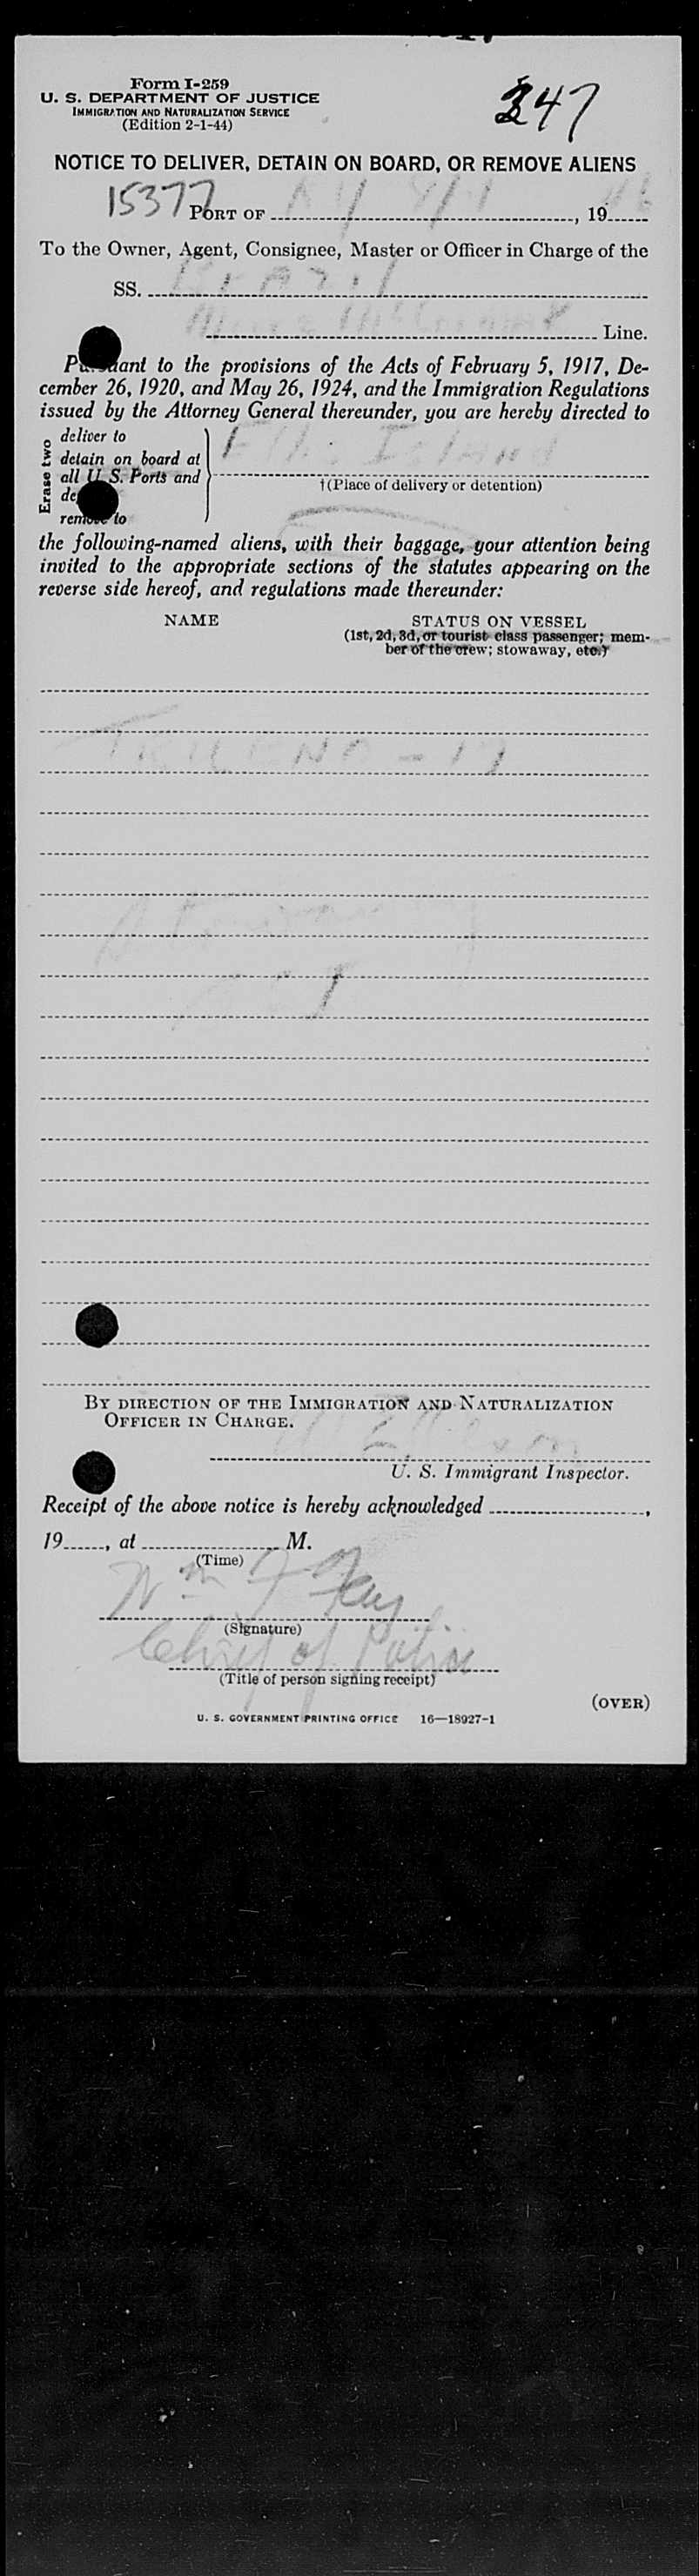 Form I-259
U. S. DEPARTMENT OF JUSTICE
IMMIGRATION AND NATURALIZATION SERVICE
(Edition 2-1-44)
247
NOTICE TO DELIVER, DETAIN ON BOARD, OR REMOVE ALIENS
15377
PORT OF NY 19 46
To the Owner, Agent, Consignee, Master or Officer in Charge of the
SS. Brazil
Moore McCormack Line.
Pursuant to the provisions of the Acts of February 5, 1917, De-
cember 26, 1920, and May 26, 1924, and the Immigration Regulations
issued by the Attorney General thereunder, you are hereby directed to
Erase two
deliver to
detain on board at
all U. S. Ports and
remove to
Ellis Island
†(Place of delivery or detention)
the following-named aliens, with their baggage, your attention being
invited to the appropriate sections of the statutes appearing on the
reverse side hereof, and regulations made thereunder:
NAME STATUS ON VESSEL
(1st, 2d, 3d, or tourist class passenger; mem-
ber of the crew; stowaway, etc.)
BY DIRECTION OF THE IMMIGRATION AND NATURALIZATION
OFFICER IN CHARGE.
U. S. Immigrant Inspector.
Receipt of the above notice is hereby acknowledged ,
19 , at M.
(Time)
Wm F Fay
(Signature)
Chief of Police
(Title of person signing receipt)
(OVER)
U. S. GOVERNMENT PRINTING OFFICE 16—18927-1